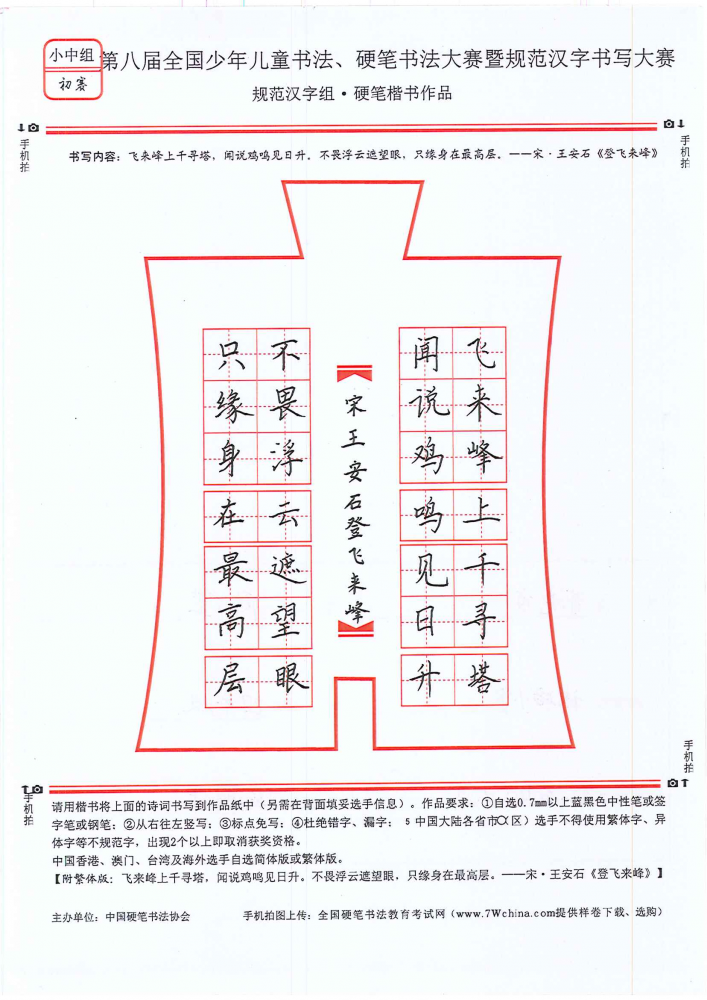 小中组
初赛
第八届全国少年儿童书法、硬笔书法大赛暨规范汉字书写大赛
规范汉字组·硬笔楷书作品
手机拍
手机拍
书写内容：飞来峰上千寻塔，闻说鸡鸣见日升。不畏浮云遮望眼，只缘身在最高层。——宋·王安石《登飞来峰》
飞来峰上千寻塔
闻说鸡鸣见日升
宋王安石登飞来峰
不畏浮云遮望眼
只缘身在最高层
手机拍
手机拍
请用楷书将上面的诗词书写到作品纸中（另需在背面填妥选手信息）。作品要求：①自选0.7mm以上蓝黑色中性笔或签
字笔或钢笔；②从右往左竖写；③标点免写；④杜绝错字、漏字； 5 中国大陆各省市区）选手不得使用繁体字、异
体字等不规范字，出现2个以上即取消获奖资格。
中国香港、澳门、台湾及海外选手自选简体版或繁体版。
【附繁体版：飞来峰上千寻塔，闻说鸡鸣见日升。不畏浮云遮望眼，只缘身在最高层。——宋·王安石《登飞来峰》】
主办单位：中国硬笔书法协会 手机拍图上传：全国硬笔书法教育考试网（www.7Wchina.com提供样卷下载、选购）